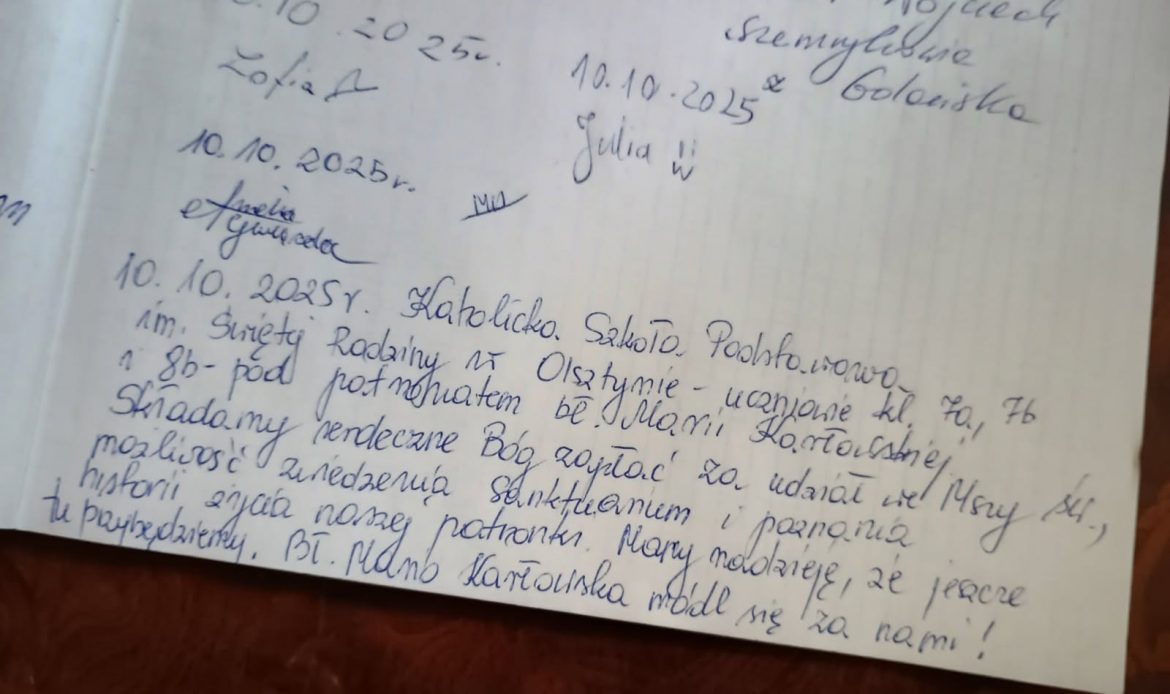 .10.2025r.
Zofia
Szemryłowie
10.10.2025r
Julia
10.10.2025r.
Amelia
Gwiazda
10.10.2025r. Katolicka Szkoła Podstawowa
im. Świętej Rodziny w Olsztynie - uczniowie kl. 7a, 7b
i 8b - pod patronatem bł. Marii Karłowskiej
Składamy serdeczne Bóg zapłać za udział we Mszy św.,
możliwość zwiedzenia Sanktuarium i poznania
historii życia naszej patronki. Mamy nadzieję, że jeszcze
tu przybędziemy. Bł. Mario Karłowska módl się za nami!